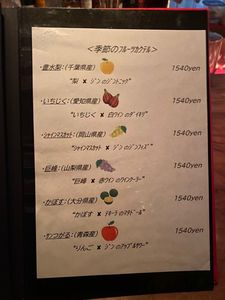 ＜季節のフルーツカクテル＞
・豊水梨：(千葉県産) 1540yen
"梨 × ジンのジントニック"
・いちじく：(愛知県産) 1540yen
"いちじく × 白ワインのダイキリ"
・シャインマスカット：(岡山県産) 1540yen
"シャインマスカット × ジンのジンフィズ"
・巨峰：(山梨県産) 1540yen
"巨峰 × 赤ワインのワインクーラー"
・かぼす：(大分県産) 1540yen
"かぼす × テキーラのマタドール"
・サンつがる：(青森産) 1540yen
"りんご × ジンのアップルサワー"